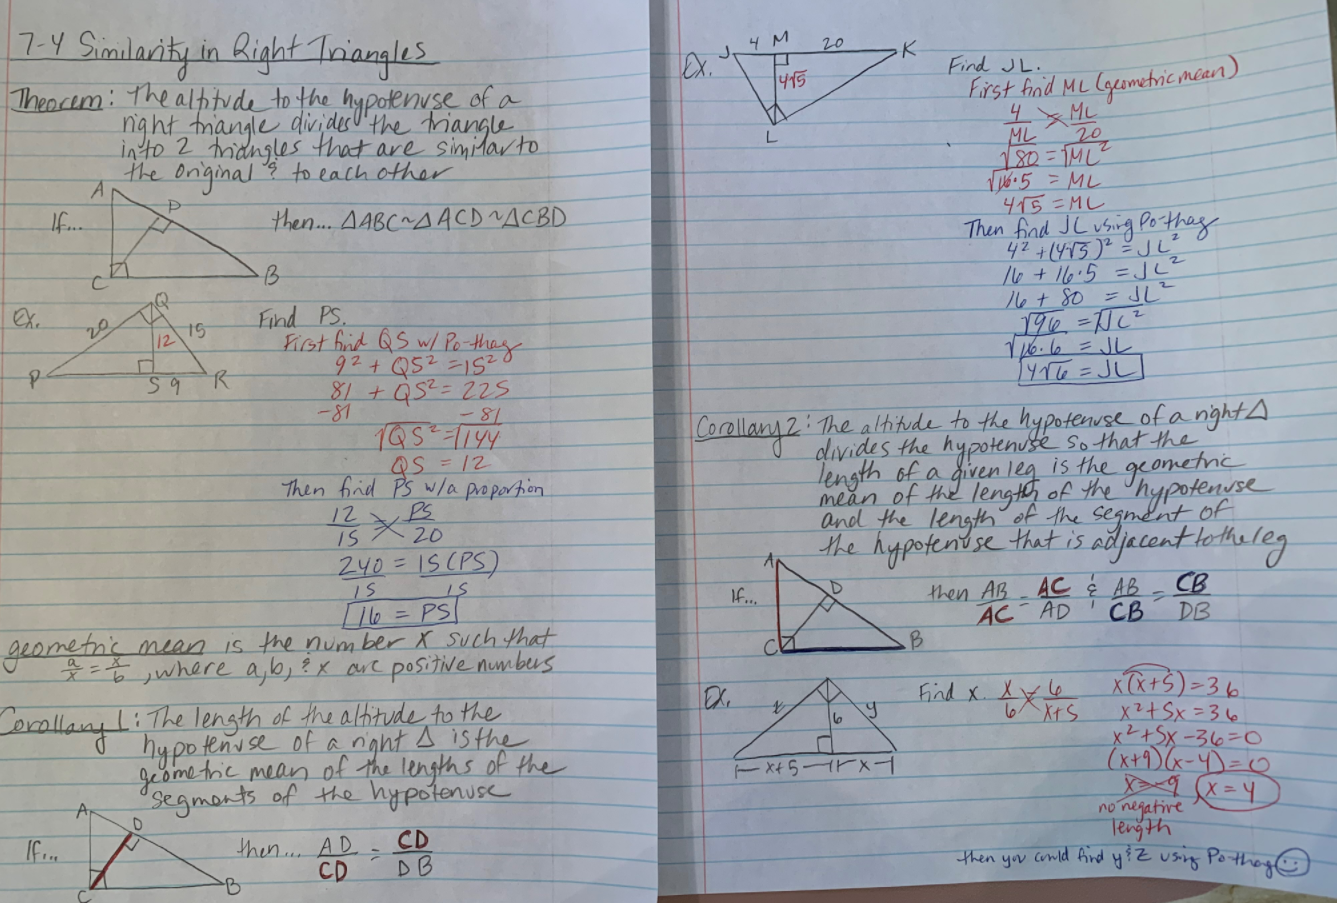 7-4 Similarity in Right Triangles
Theorem: The altitude to the hypotenuse of a
right triangle divides the triangle
into 2 triangles that are similar to
the original & to each other
A
D
If...
then... △ABC~△ACD~△CBD
C
B
Ex.
Q
20
15
12
P
S
9
R
Find PS.
First find QS w/ Po-thag
9² + QS² = 15²
81 + QS² = 225
-81 -81
√QS² = √144
QS = 12
Then find PS w/a proportion
12/15 = PS/20
240 = 15(PS)
15 15
16 = PS
geometric mean is the number x such that
a/x = x/b, where a, b, & x are positive numbers
Corollary 1: The length of the altitude to the
hypotenuse of a right △ is the
geometric mean of the lengths of the
segments of the hypotenuse
A
D
If...
then... AD/CD = CD/DB
C
B
Ex.
J
4
M
20
K
4√5
L
Find JL.
First find ML (geometric mean)
4/ML = ML/20
√80 = √ML²
√16·5 = ML
4√5 = ML
Then find JL using Po-thag
4² + (4√5)² = JL²
16 + 16·5 = JL²
16 + 80 = JL²
√96 = √JL²
√16·6 = JL
4√6 = JL
Corollary 2: The altitude to the hypotenuse of a right △
divides the hypotenuse so that the
length of a given leg is the geometric
mean of the length of the hypotenuse
and the length of the segment of
the hypotenuse that is adjacent to the leg
A
D
If...
then AB/AC = AC/AD & AB/CB = CB/DB
C
B
Ex.
z
6
y
x+5
x
Find x.
x/6 = 6/x+5
x(x+5)=36
x²+5x=36
x²+5x-36=0
(x+9)(x-4)=0
x=-9, x=4
no negative
length
then you could find y & z using Po-thag